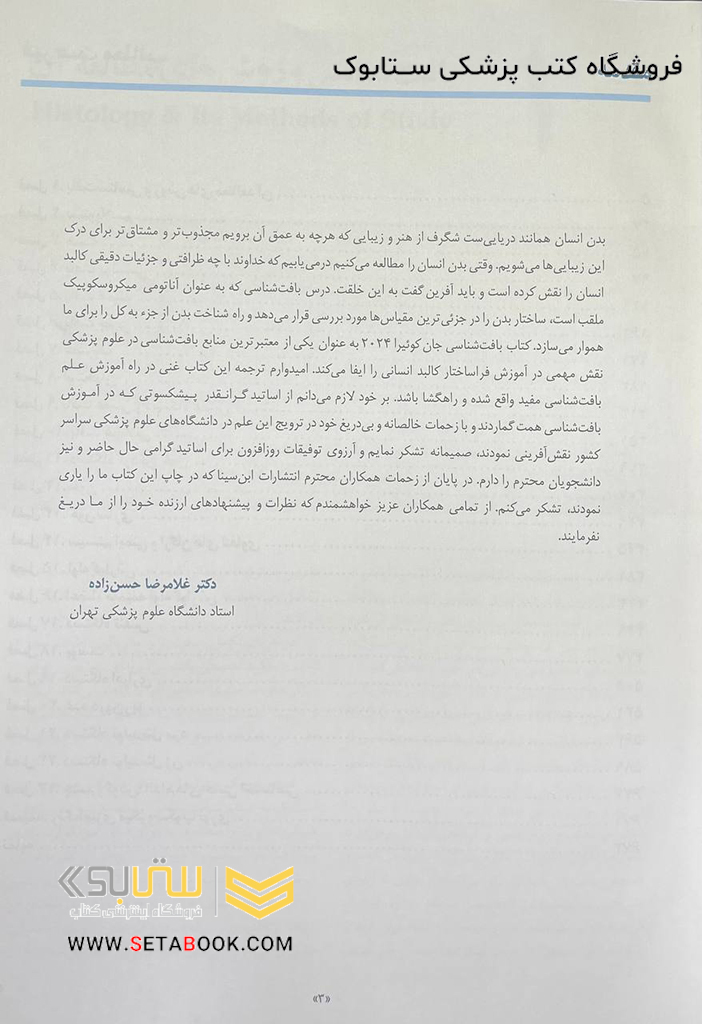 فروشگاه کتب پزشکی ستابوک
Histology & Its Methods of Study
بدن انسان همانند دریایی‌ست شگرف از هنر و زیبایی که هرچه به عمق آن برویم مجذوب‌تر و مشتاق‌تر برای درک
این زیبایی‌ها می‌شویم. وقتی بدن انسان را مطالعه می‌کنیم درمی‌یابیم که خداوند با چه ظرافتی و جزئیات دقیقی کالبد
انسان را نقش کرده است و باید آفرین گفت به این خلقت. درس بافت‌شناسی که به عنوان آناتومی میکروسکوپیک
ملقب است، ساختار بدن را در جزئی‌ترین مقیاس‌ها مورد بررسی قرار می‌دهد و راه شناخت بدن از جزء به کل را برای ما
هموار می‌سازد. کتاب بافت‌شناسی جان کوئیرا ۲۰۲۴ به عنوان یکی از معتبرترین منابع بافت‌شناسی در علوم پزشکی
نقش مهمی در آموزش فراساختار کالبد انسانی را ایفا می‌کند. امیدوارم ترجمه این کتاب غنی در راه آموزش علم
بافت‌شناسی مفید واقع شده و راهگشا باشد. بر خود لازم می‌دانم از اساتید گرانقدر پیشکسوتی که در آموزش
بافت‌شناسی همت گماردند و با زحمات خالصانه و بی‌دریغ خود در ترویج این علم در دانشگاه‌های علوم پزشکی سراسر
کشور نقش‌آفرینی نمودند، صمیمانه تشکر نمایم و آرزوی توفیقات روزافزون برای اساتید گرامی حال حاضر و نیز
دانشجویان محترم را دارم. در پایان از زحمات همکاران محترم انتشارات ابن‌سینا که در چاپ این کتاب ما را یاری
نمودند، تشکر می‌کنم. از تمامی همکاران عزیز خواهشمندم که نظرات و پیشنهادهای ارزنده خود را از ما دریغ
نفرمایند.
دکتر غلامرضا حسن‌زاده
استاد دانشگاه علوم پزشکی تهران
ستابوک
فروشگاه اینترنتی کتاب
WWW.SETABOOK.COM
«۳»